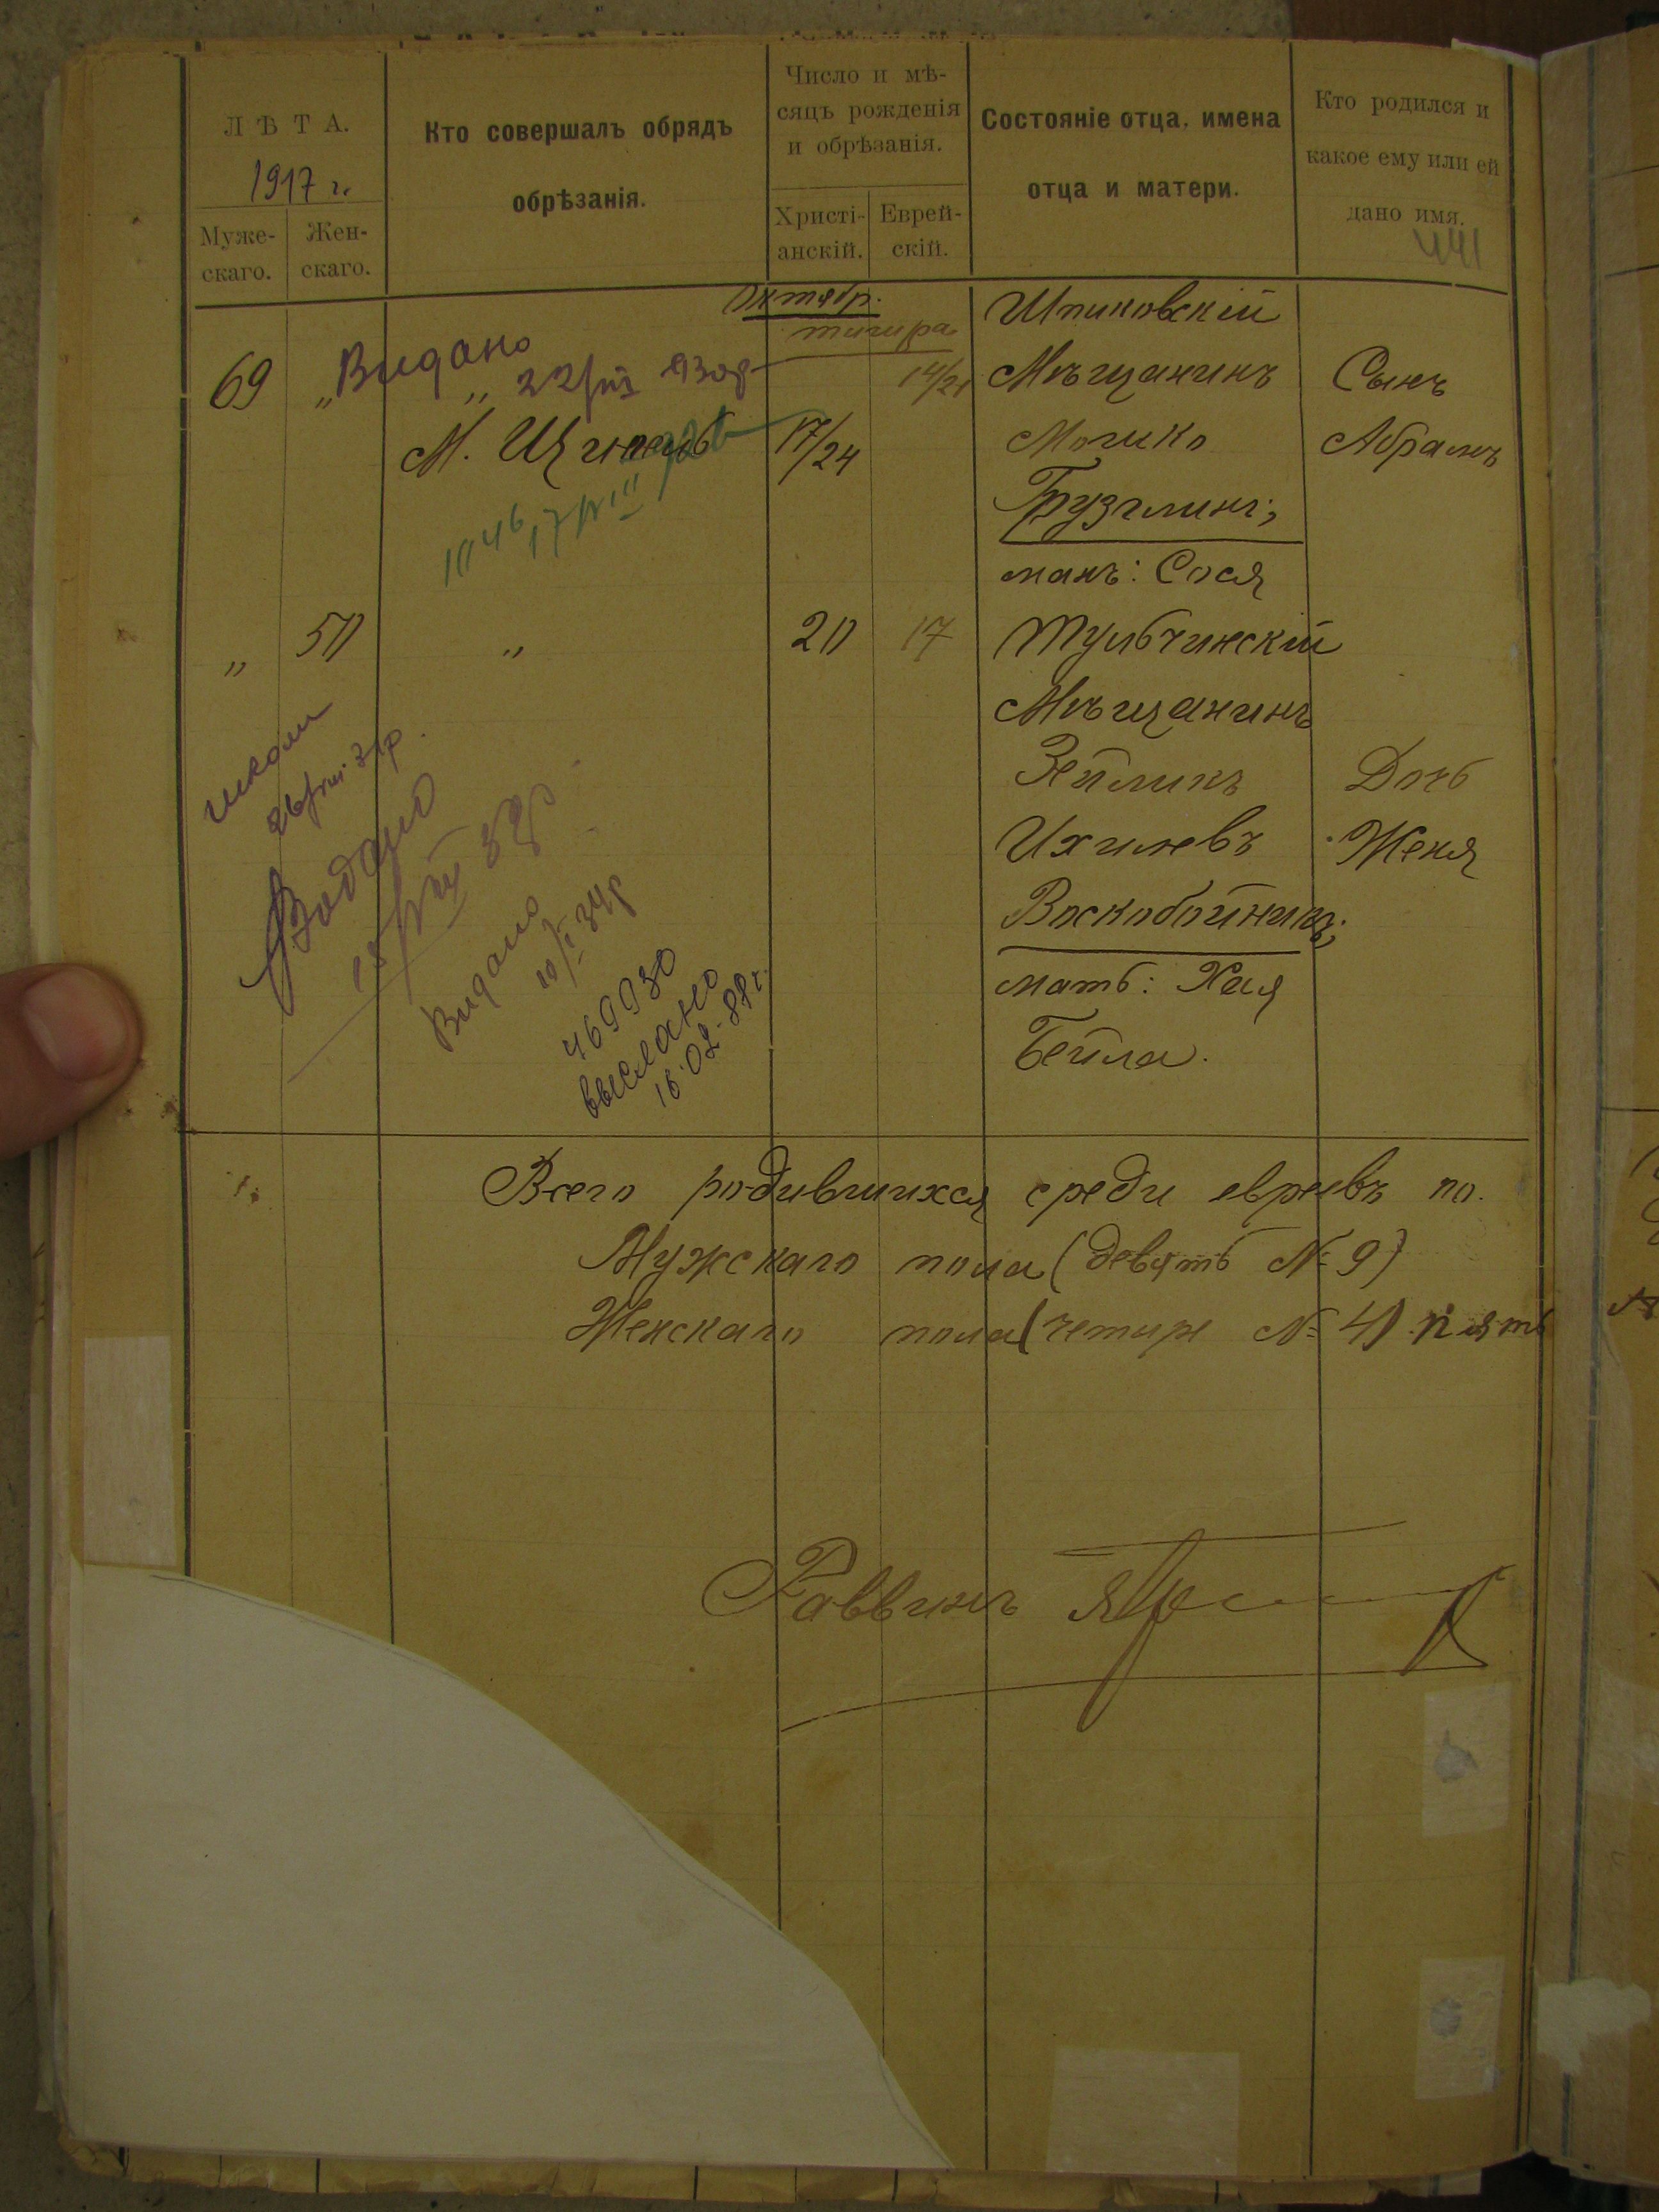 ЛѢТА.
1917 г.
Муже-
скаго.
Жен-
скаго.
Кто совершалъ обрядъ
обрѣзанія.
Число и мѣ-
сяцъ рожденія
и обрѣзанія.
Христі-
анскій.
Еврей-
скій.
Состояніе отца, имена
отца и матери.
Кто родился и
какое ему или ей
дано имя.
441
Октябр.
69 "
Видано
М.
17/24
14/21
Шпиковскій
Мѣщанинъ
Мошко
мать: Сося
Сынъ
Абрамъ
" 50 " 20 17
Тульчинскій
Мѣщанинъ
Зейликъ
Ихилевъ
Воскобойникъ;
мать: Хая
Бейла.
Дочь
Женя
школи
Видано
Видано
469930
выслано
16.02.88 г.
Всего родившихся среди евреевъ по.
Мужскаго пола (девять № 9)
Женскаго пола (четыре № 4) пять
Раввинъ